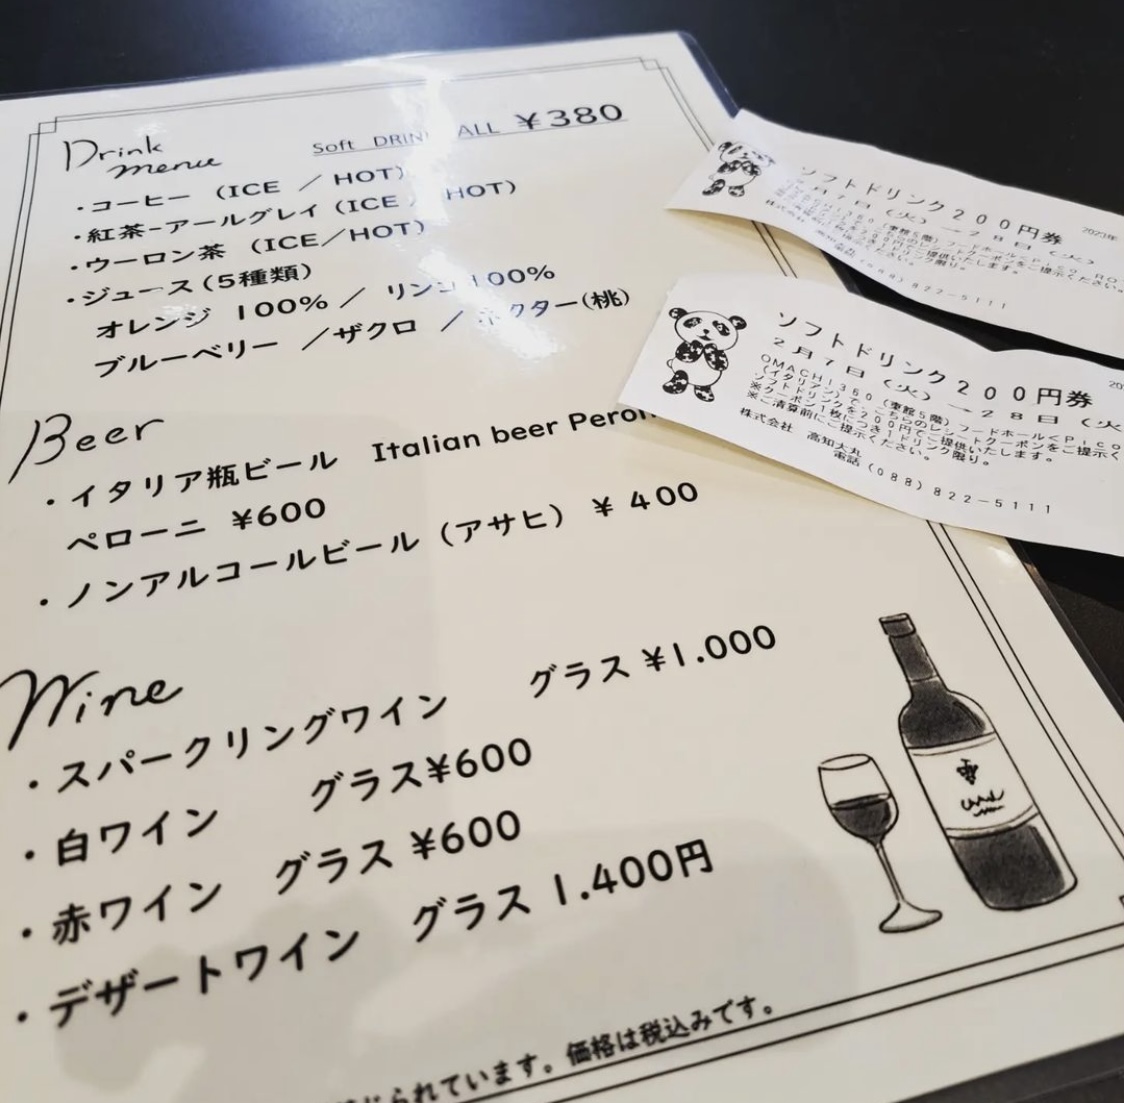 Drink
menu
Soft DRINK ALL ¥380
・コーヒー (ICE / HOT)
・紅茶-アールグレイ (ICE / HOT)
・ウーロン茶 (ICE/HOT)
・ジュース(5種類)
オレンジ 100% / リンゴ 100%
ブルーベリー /ザクロ / ネクター(桃)
Beer
・イタリア瓶ビール Italian beer
ペローニ ¥600
・ノンアルコールビール (アサヒ) ¥400
Wine
・スパークリングワイン グラス ¥1.000
・白ワイン グラス¥600
・赤ワイン グラス ¥600
・デザートワイン グラス 1.400円
られています。価格は税込みです。
ソフトドリンク200円券
2023年
2月7日(火)→28日(火)
株式会社 高知大丸
電話(088)822-5111
ソフトドリンク200円券
2月7日(火)→28日(火
OMACHI360(東館5階)フードホール<PICO
(イタリアン)で、こちらのレシートクーポンをご提示く
ソフトドリンクを200円でご提供いたします。
※クーポン1枚につき1ドリンク限り。
※ご清算前にご提示ください。
株式会社 高知大丸
電話(088)822-5111